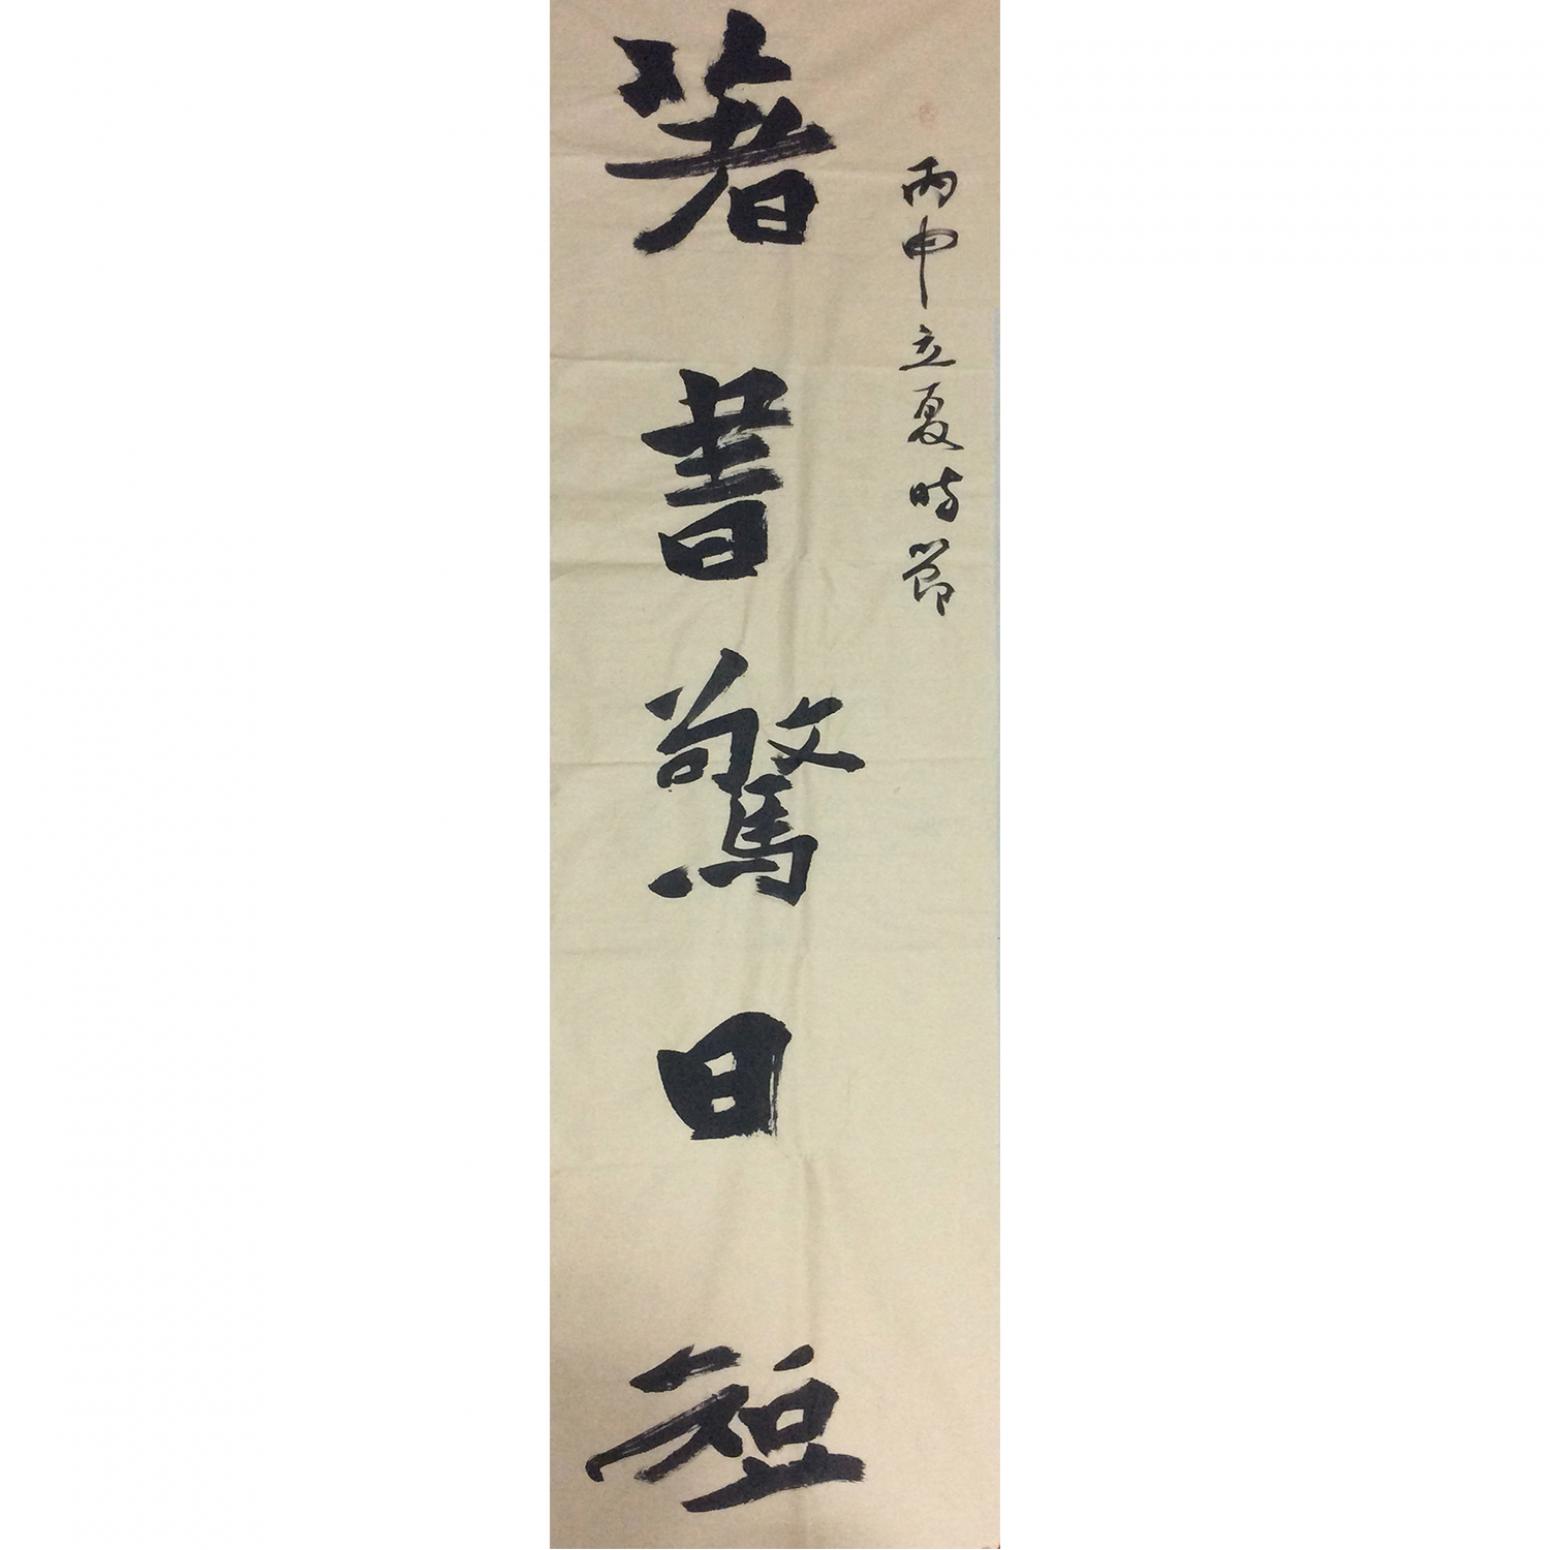 丙申立夏時節
著書驚日短